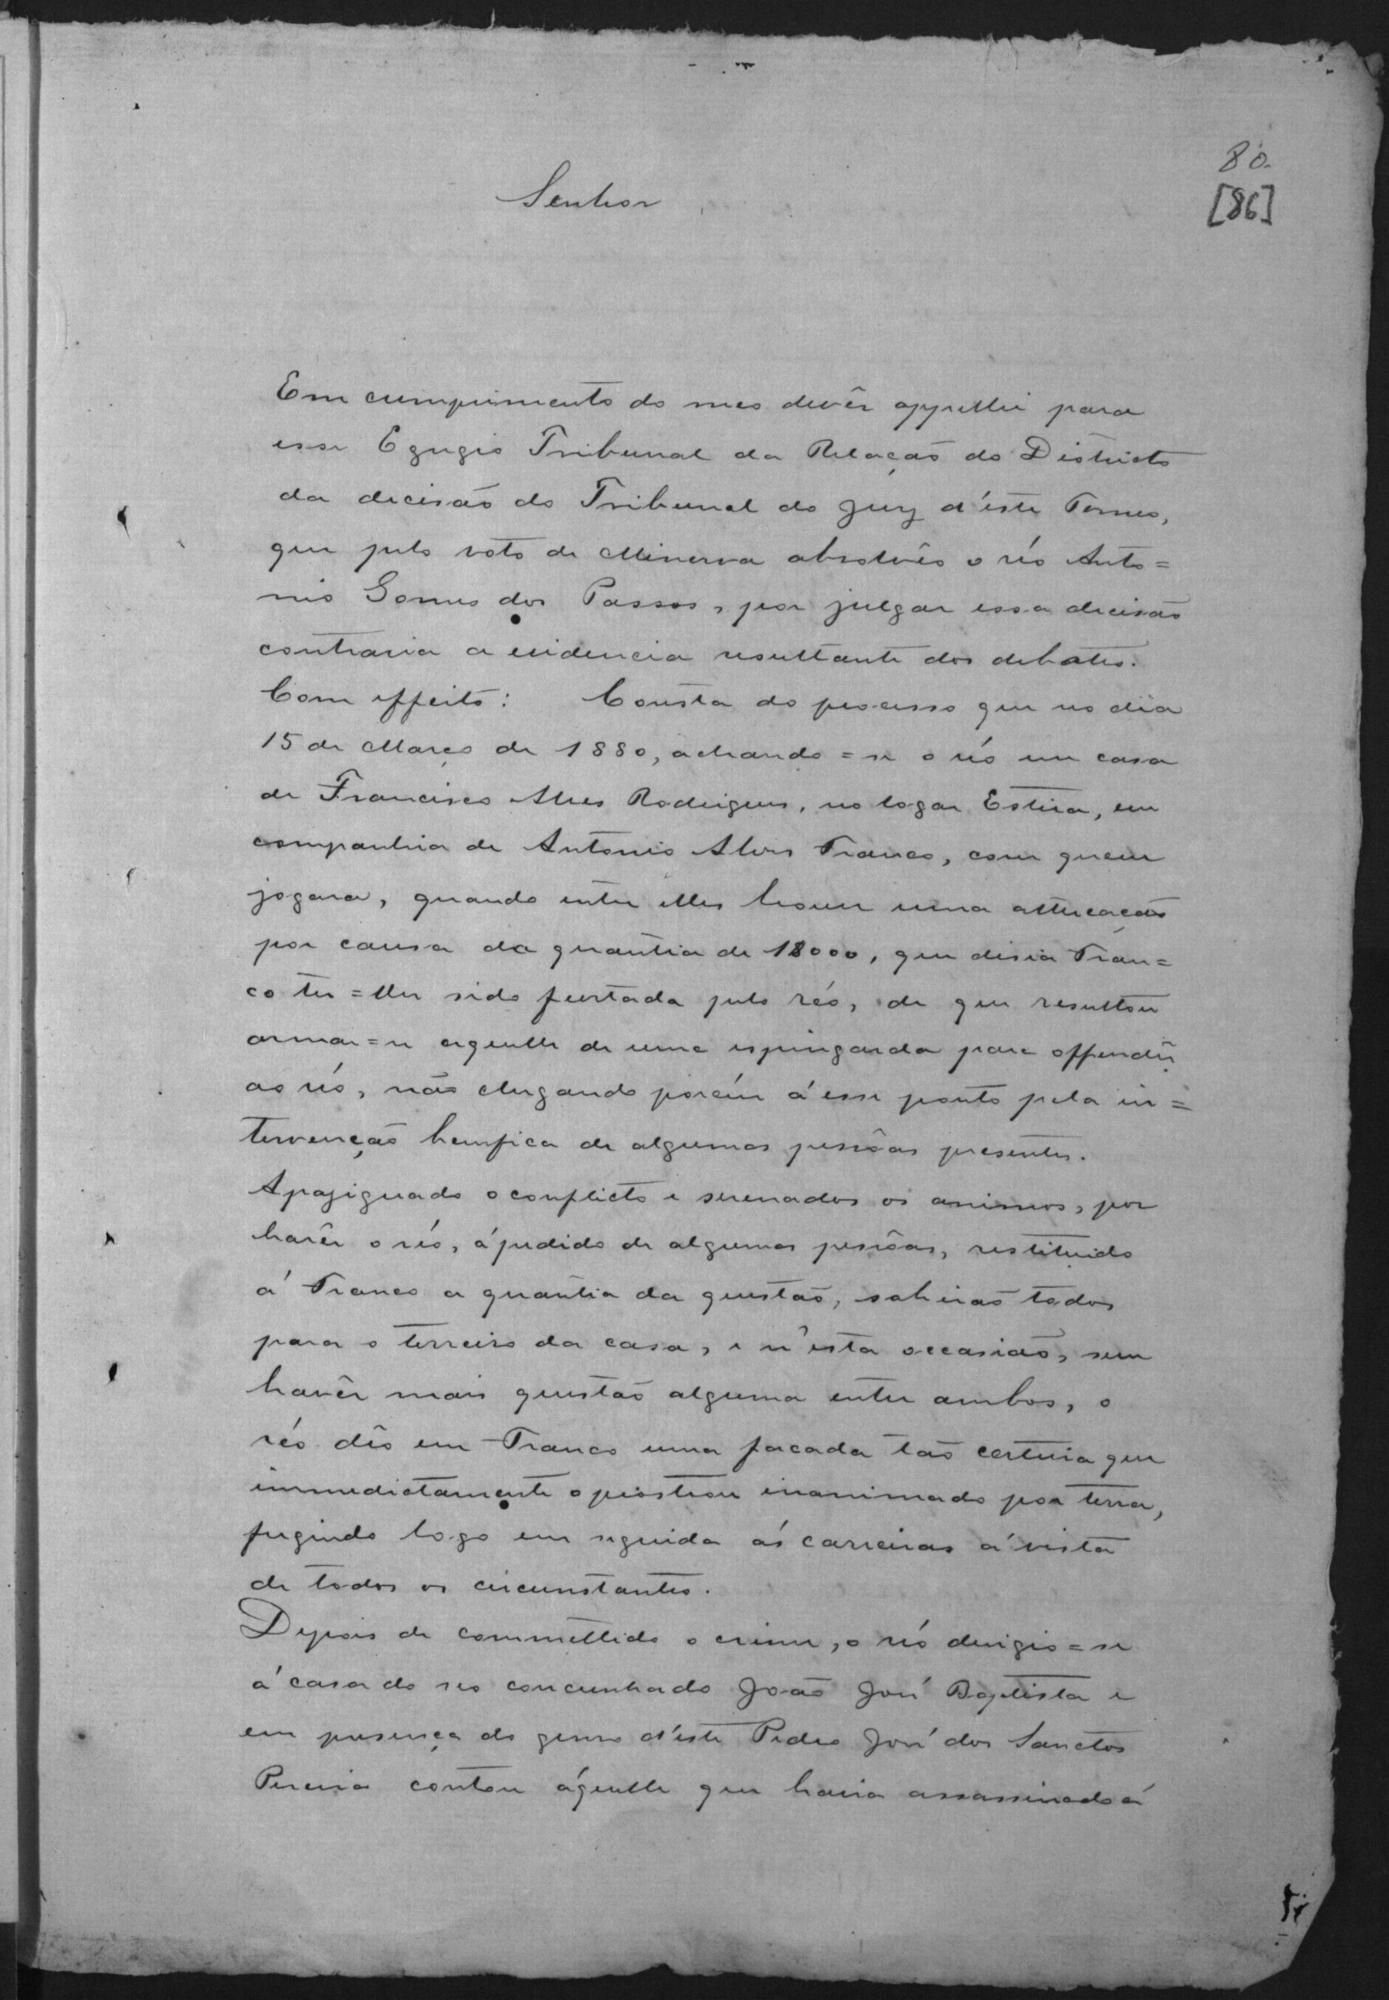 80.
[86]
Senhor
Em cumprimento do meo devêr appellei para
esse Egregio Tribunal da Relação do Districto
da decisão do Tribunal do Jury d'este Termo,
que pelo voto de Minerva absolvêo o réo Anto=
nio Gomes dos Passos, por julgar essa decisão
contraria a evidencia resultante dos debates.
Com effeito: Consta do processo que no dia
15 de Março de 1880, achando=se o réo em casa
de Francisco Alves Rodrigues, no logar Estiva, em
companhia de Antonio Alves Franco, com quem
jogara, quando entre elles houve uma altercação
por causa da quantia de 18000, que disia Fran=
co ter=lhe sido furtada pelo réo, de que resultou
armar=se aquelle de uma espingarda para offendêr
ao réo, não chegando porém á esse ponto pela in=
tervenção benefica de algumas pessôas presentes.
Apasiguado o conflicto e serenados os animos, por
havêr o réo, á pedido de algumas pessôas, restituido
á Franco a quantia da questão, sahirão todos
para o terreiro da casa, e n'esta occasião, sem
havêr mais questão alguma entre ambos, o
réo dêo em Franco uma facada tão certeira que
immediatamente o prostrou inanimado por terra,
fugindo logo em seguida ás carreiras á vista
de todos os circunstantes.
Depois de commettido o crime, o réo derigio=se
á casa do seo concunhado João José Baptista e
em presença do genro d'este Pedro José dos Sanctos
Pereira contou áquelle que havia assassinado á